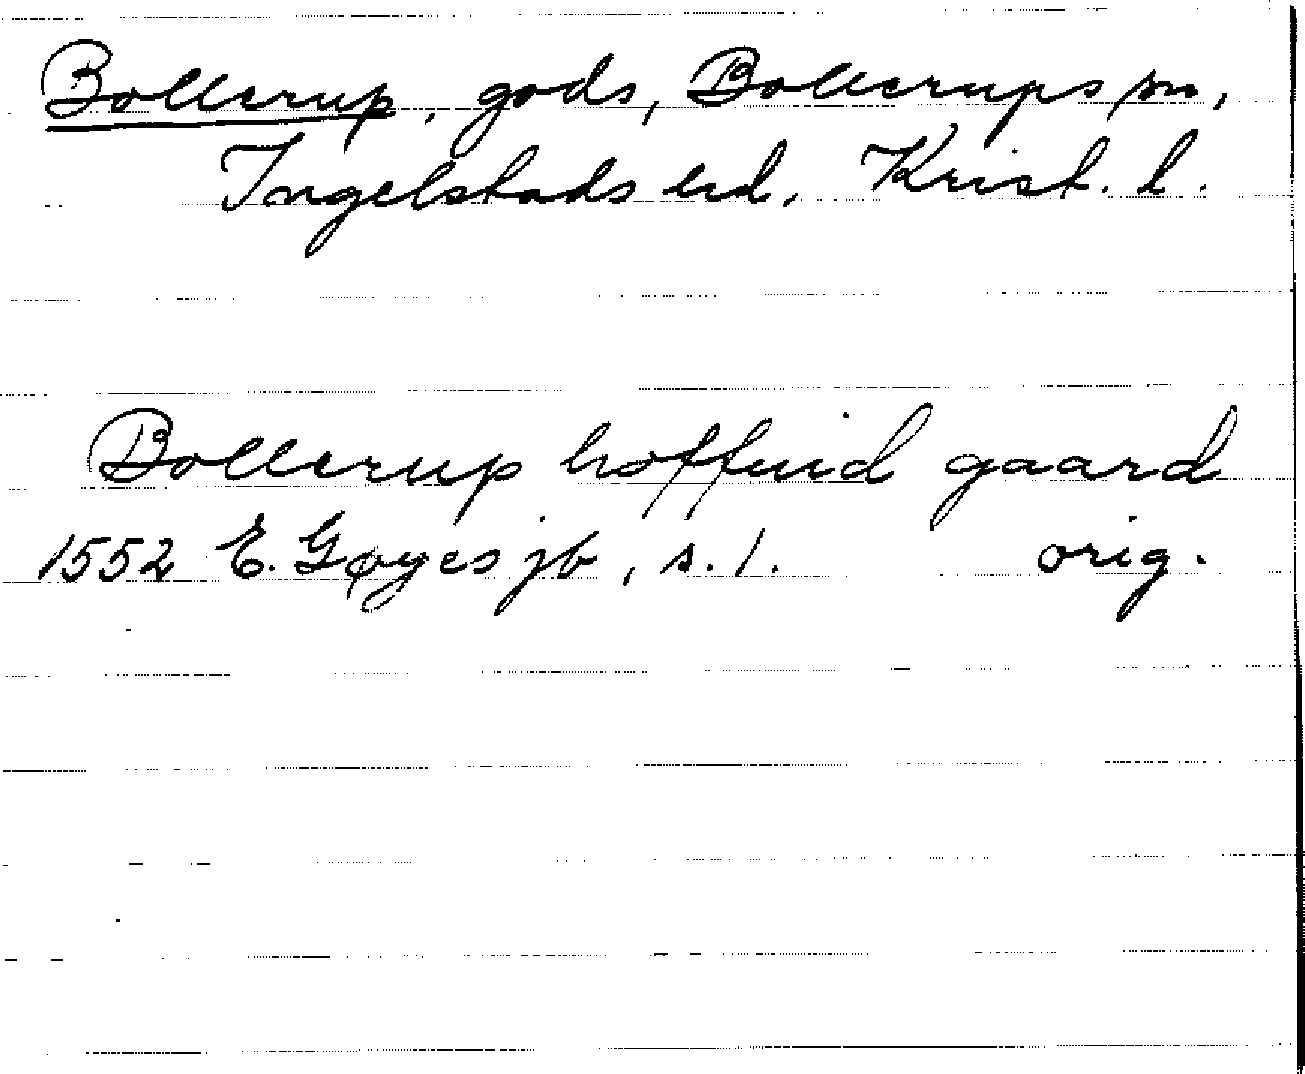 Bollerup, gods, Bollerups sn,
Ingelstads hd, Krist. l.
Bollerup hoffuid gaard
1552 E. Gøyes jb, s. 1. orig.